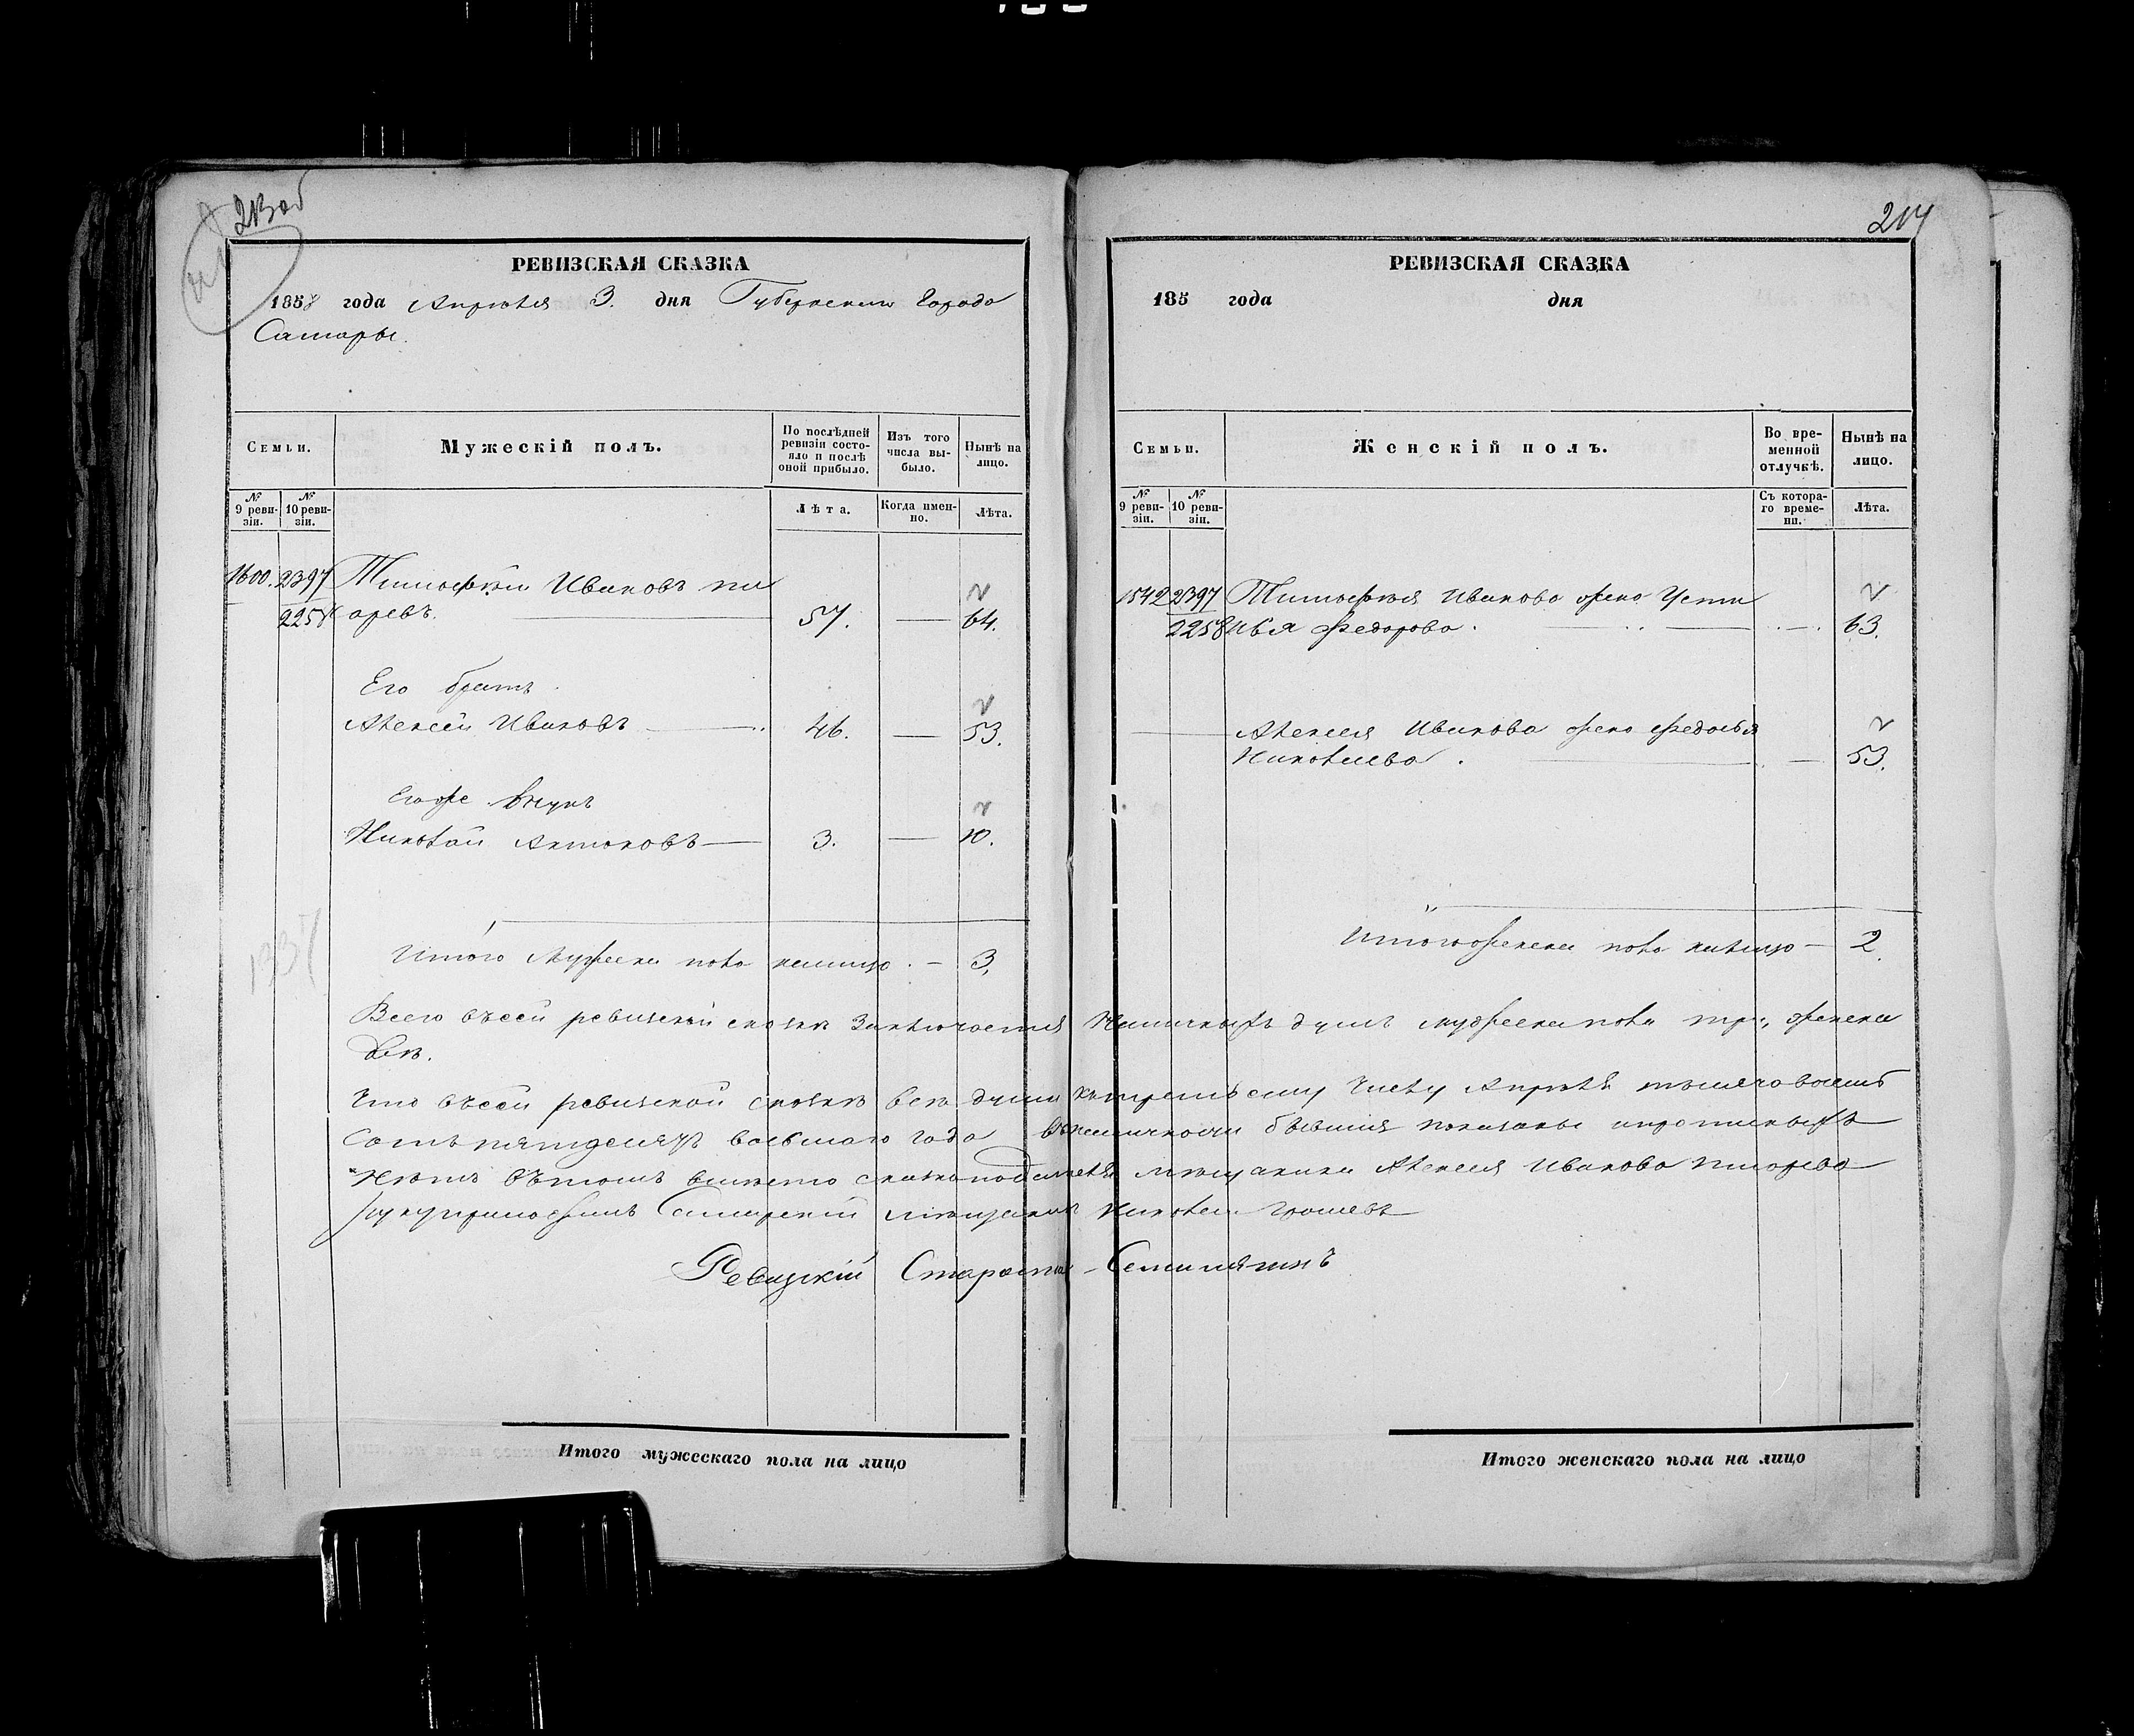 213 об
214
РЕВИЗСКАЯ СКАЗКА
1858 года Апрѣля 3. дня Губернскаго Города
Самары.
Семьи.
Мужескій полъ.
По послѣдней ревизіи состояло и послѣ оной прибыло.
Изъ того числа выбыло.
Нынѣ на лицо.
№ 9 ревизіи.
№ 10 ревизіи.
Лѣта.
Когда именно.
Лѣта.
1600. 2397 Тимофей Ивановъ
2258 аревъ. 57. — 64.
Его братъ
Алексей Ивановъ — 46. — 53.
Егоже внукъ
Николай Антоновъ — 3. — 10.
Итого Мужеска пола налицо — 3.
1337
РЕВИЗСКАЯ СКАЗКА
185 года дня
Семьи.
Женскій полъ.
Во временной отлучкѣ.
Нынѣ на лицо.
№ 9 ревизіи.
№ 10 ревизіи.
Съ котораго времени.
Лѣта.
1542 2397 Тимофея Иванова жена Усти
2258 нья Федорова. — 63.
Алексея Иванова жена Федосья
Николаева. — 53.
Итого женска пола налицо — 2.
Всего въсей ревизской сказке Заключается Наличныхъ душъ мужеска пола три, женска
две.
Что въсей ревизской сказке все души къ третьему Числу Апреля тысяча восемь
Сотъ пятдесятъ восьмаго года вналичности бывшия показаны ипрописныхъ
Нетъ вътомъ вместо сказкоподателя мещанина Алексея Иванова
руку приложилъ Самарский мещанинъ Николай
Ревизскій Староста
Итого мужескаго пола на лицо
Итого женскаго пола на лицо